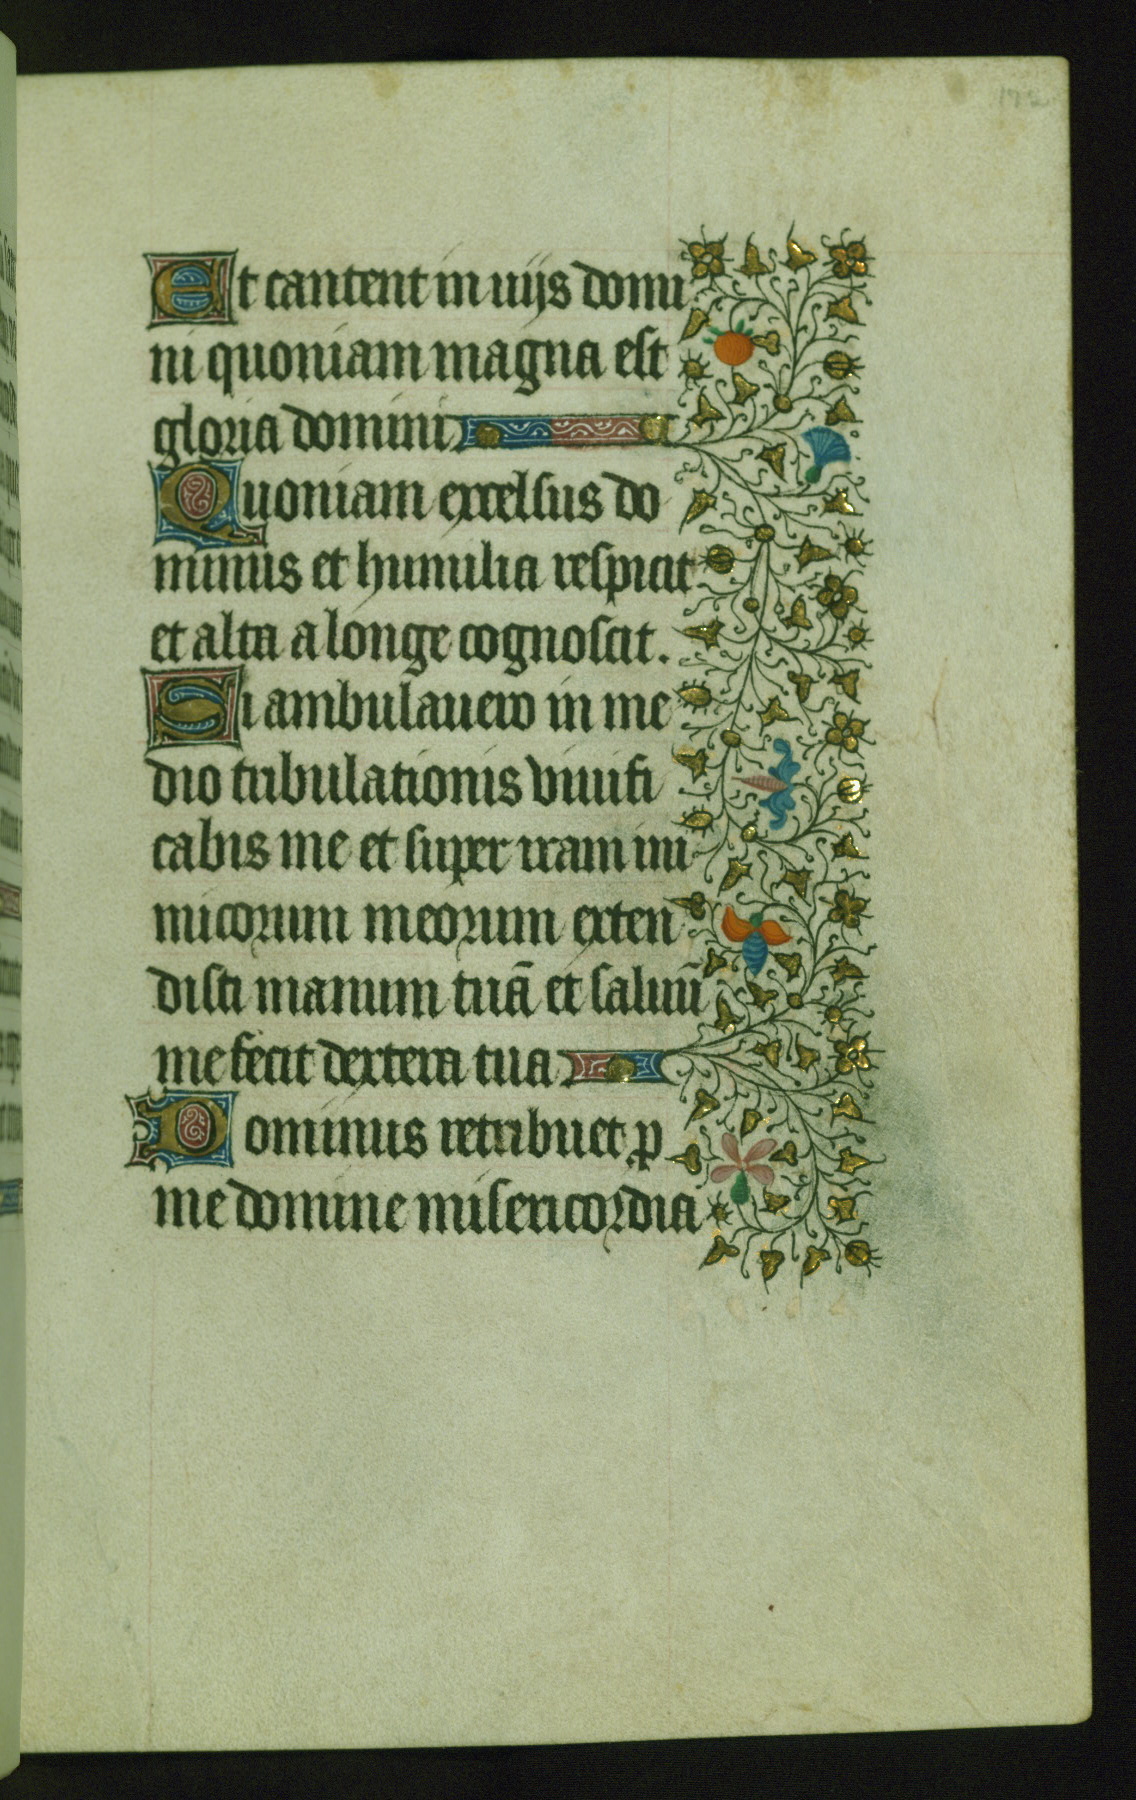 Et cantent in uijs domi
ni quoniam magna est
gloria domini
Quoniam excelsus do
minus et humilia respicit
et alta a longe cognoscit.
Si ambulauero in me
dio tribulationis viuifi
cabis me et super iram ini
micorum meorum exten
disti manum tuā et saluū
me fecit dextera tua
Dominus retribuet p
me domine misericordia